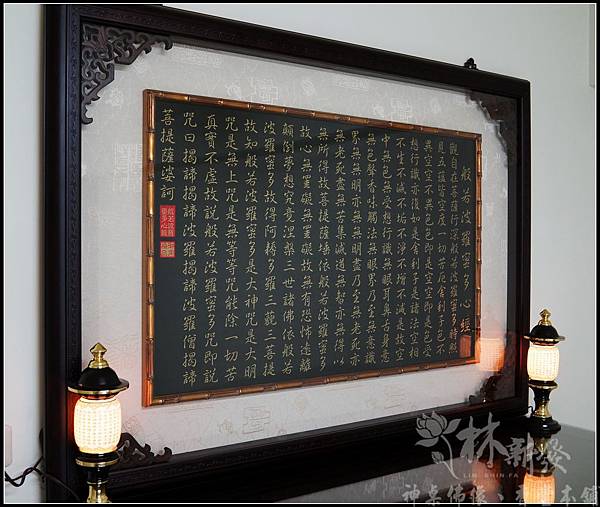 般若波羅蜜多心經
觀自在菩薩行深般若波羅蜜多時照
見五蘊皆空度一切苦厄舍利子色不
異空空不異色色即是空空即是色受
想行識亦復如是舍利子是諸法空相
不生不滅不垢不淨不增不減是故空
中無色無受想行識無眼耳鼻舌身意
無色聲香味觸法無眼界乃至無意識
界無無明亦無無明盡乃至無老死亦
無老死盡無苦集滅道無智亦無得以
無所得故菩提薩埵依般若波羅蜜多
故心無罣礙無罣礙故無有恐怖遠離
顛倒夢想究竟涅槃三世諸佛依般若
波羅蜜多故得阿耨多羅三藐三菩提
故知般若波羅蜜多是大神咒是大明
咒是無上咒是無等等咒能除一切苦
真實不虛故說般若波羅蜜多咒即說
咒曰揭諦揭諦波羅揭諦波羅僧揭諦
菩提薩婆訶
林新發
LIN SHIN FA
神桌佛像、本舖